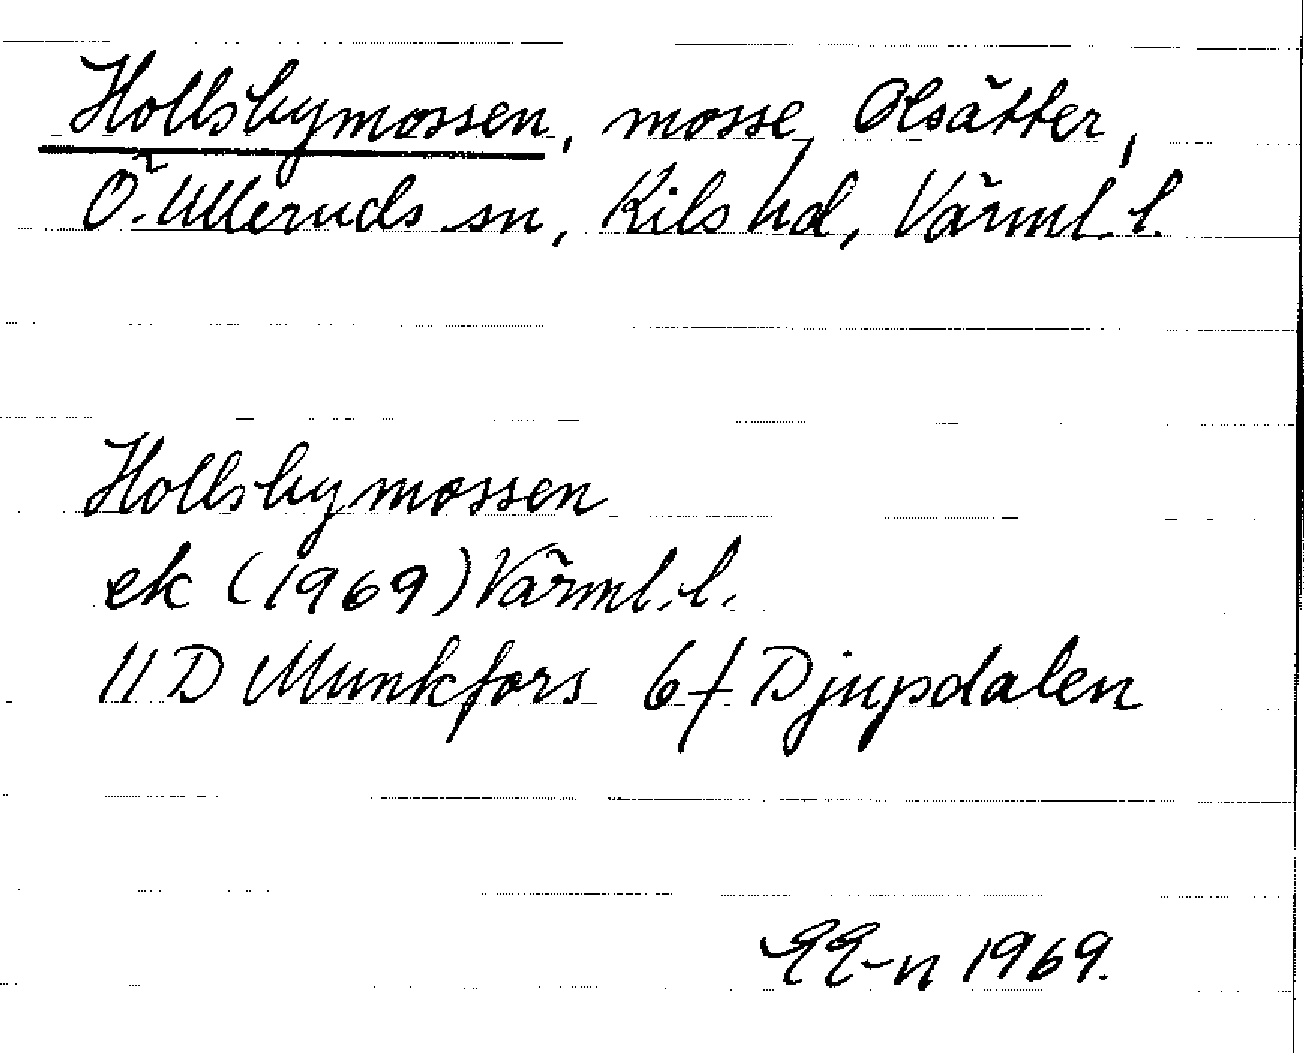 Hollsbymossen, mosse, Olsätter,
Ö. Ulleruds sn, Kils hd, Värml. l.
Hollsbymossen
ek (1969) Värml. l.
11 D Munkfors 6f Djupdalen
1969.